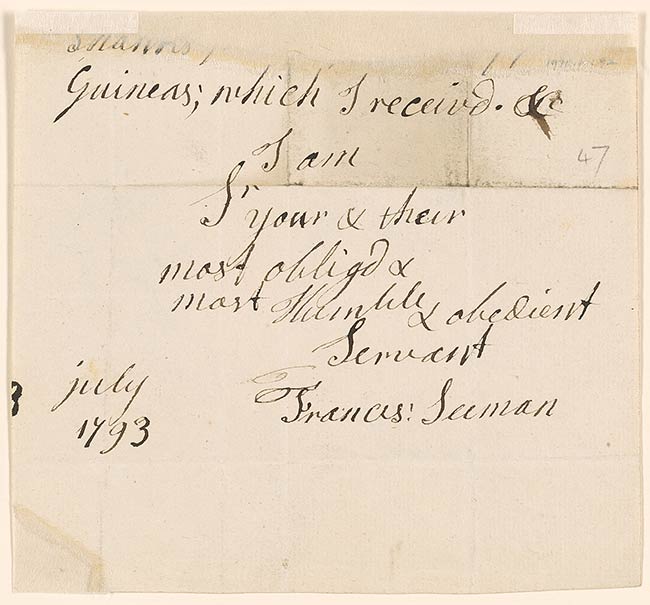 Guineas; which I receivd. &c
47
I am
Sr your & their
most obligd &
most Humble & obedient
Servant
july
Francis: Leeman
1793